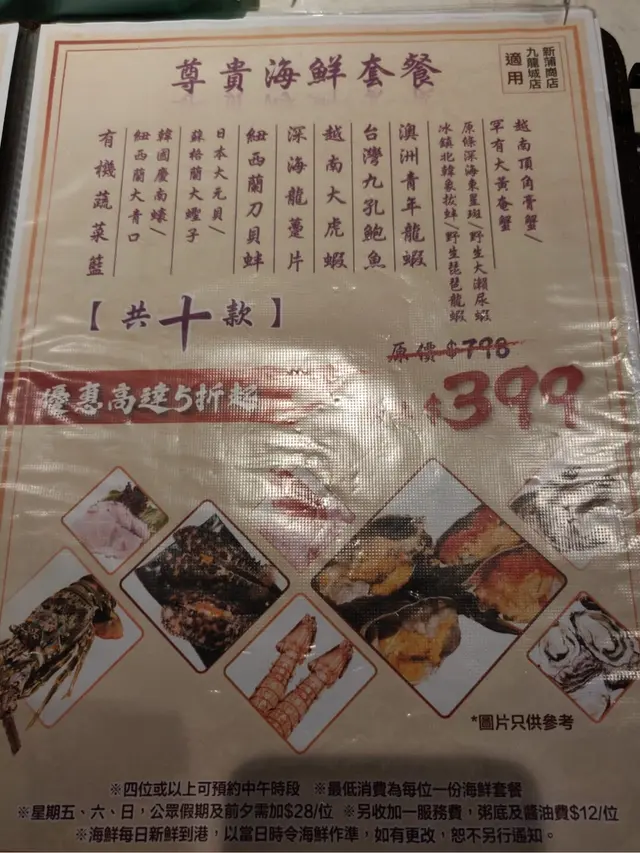 尊貴海鮮套餐
新蒲崗店
九龍城店
適用
越南頂角膏蟹/
罕有大黃奄蟹
原條深海東星斑/野生大瀨尿蝦
冰鎮北韓象拔蚌/野生琵琶龍蝦
澳洲青年龍蝦
台灣九孔鮑魚
越南大虎蝦
深海龍躉片
紐西蘭刀貝蚌
日本大元貝/
蘇格蘭大蟶子
韓國慶南蠔/
紐西蘭大青口
有機蔬菜籃
【共十款】
原價$798
優惠高達5折起
$399
*圖片只供參考
※四位或以上可預約中午時段 ※最低消費為每位一份海鮮套餐
※星期五、六、日，公眾假期及前夕需加$28/位 ※另收加一服務費，粥底及醬油費$12/位
※海鮮每日新鮮到港，以當日時令海鮮作準，如有更改，恕不另行通知。